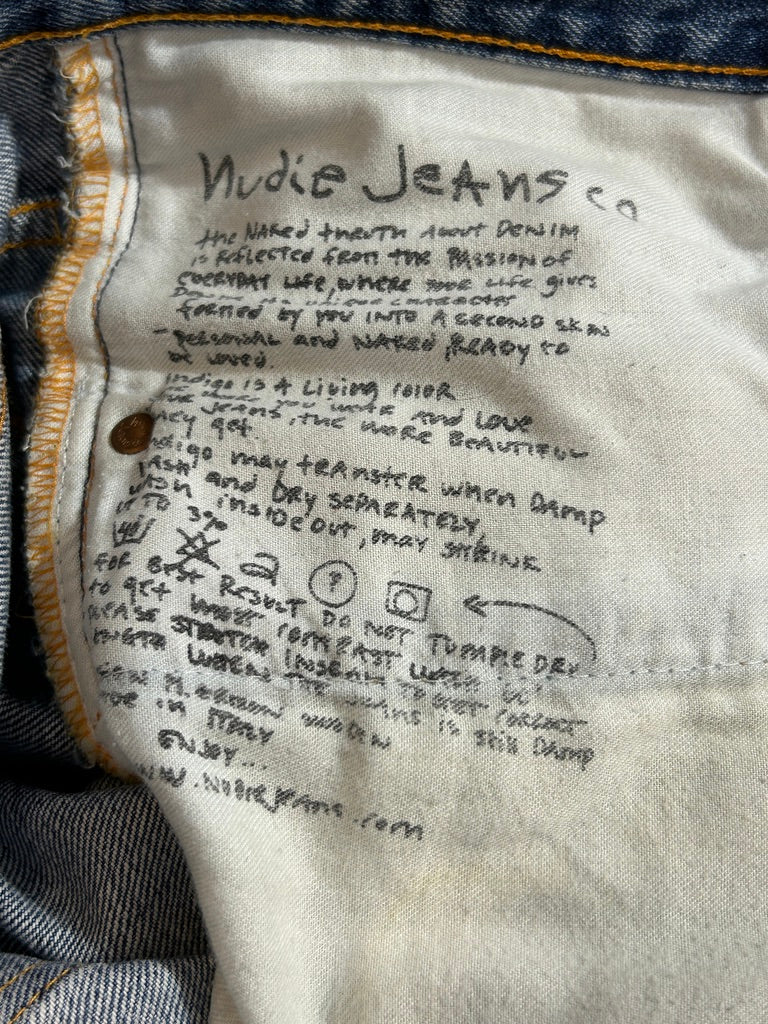 Nudie Jeans co
the NAKED thruth About DENIM
is Reflected from the PASSION of
EVERYDAY LIFE, WHERE YOUR LIFE gives
DENIM its unique CHARACTER
formed by you INTO A SECOND SKIN
- PERSONAL and NAKED, READY to
be loved.
Indigo is A Living color
the more you wear and LOVE
your JEANS, the more BEAUTIFUL
they get.
Indigo may transfer when DAMP
WASH and DRY SEPARATELY,
inside out, may SHRINK
UP TO 3%
FOR BEST RESULT DO NOT TUMPLE DRY
to get most CONTRAST WASH
PLEASE STRETCH INSEAM TO GET CORRECT
LENGTH WHEN THE JEANS is still DAMP
SWEDEN
IN ITALY
ENJOY...
WWW.NUDIEJEANS.com